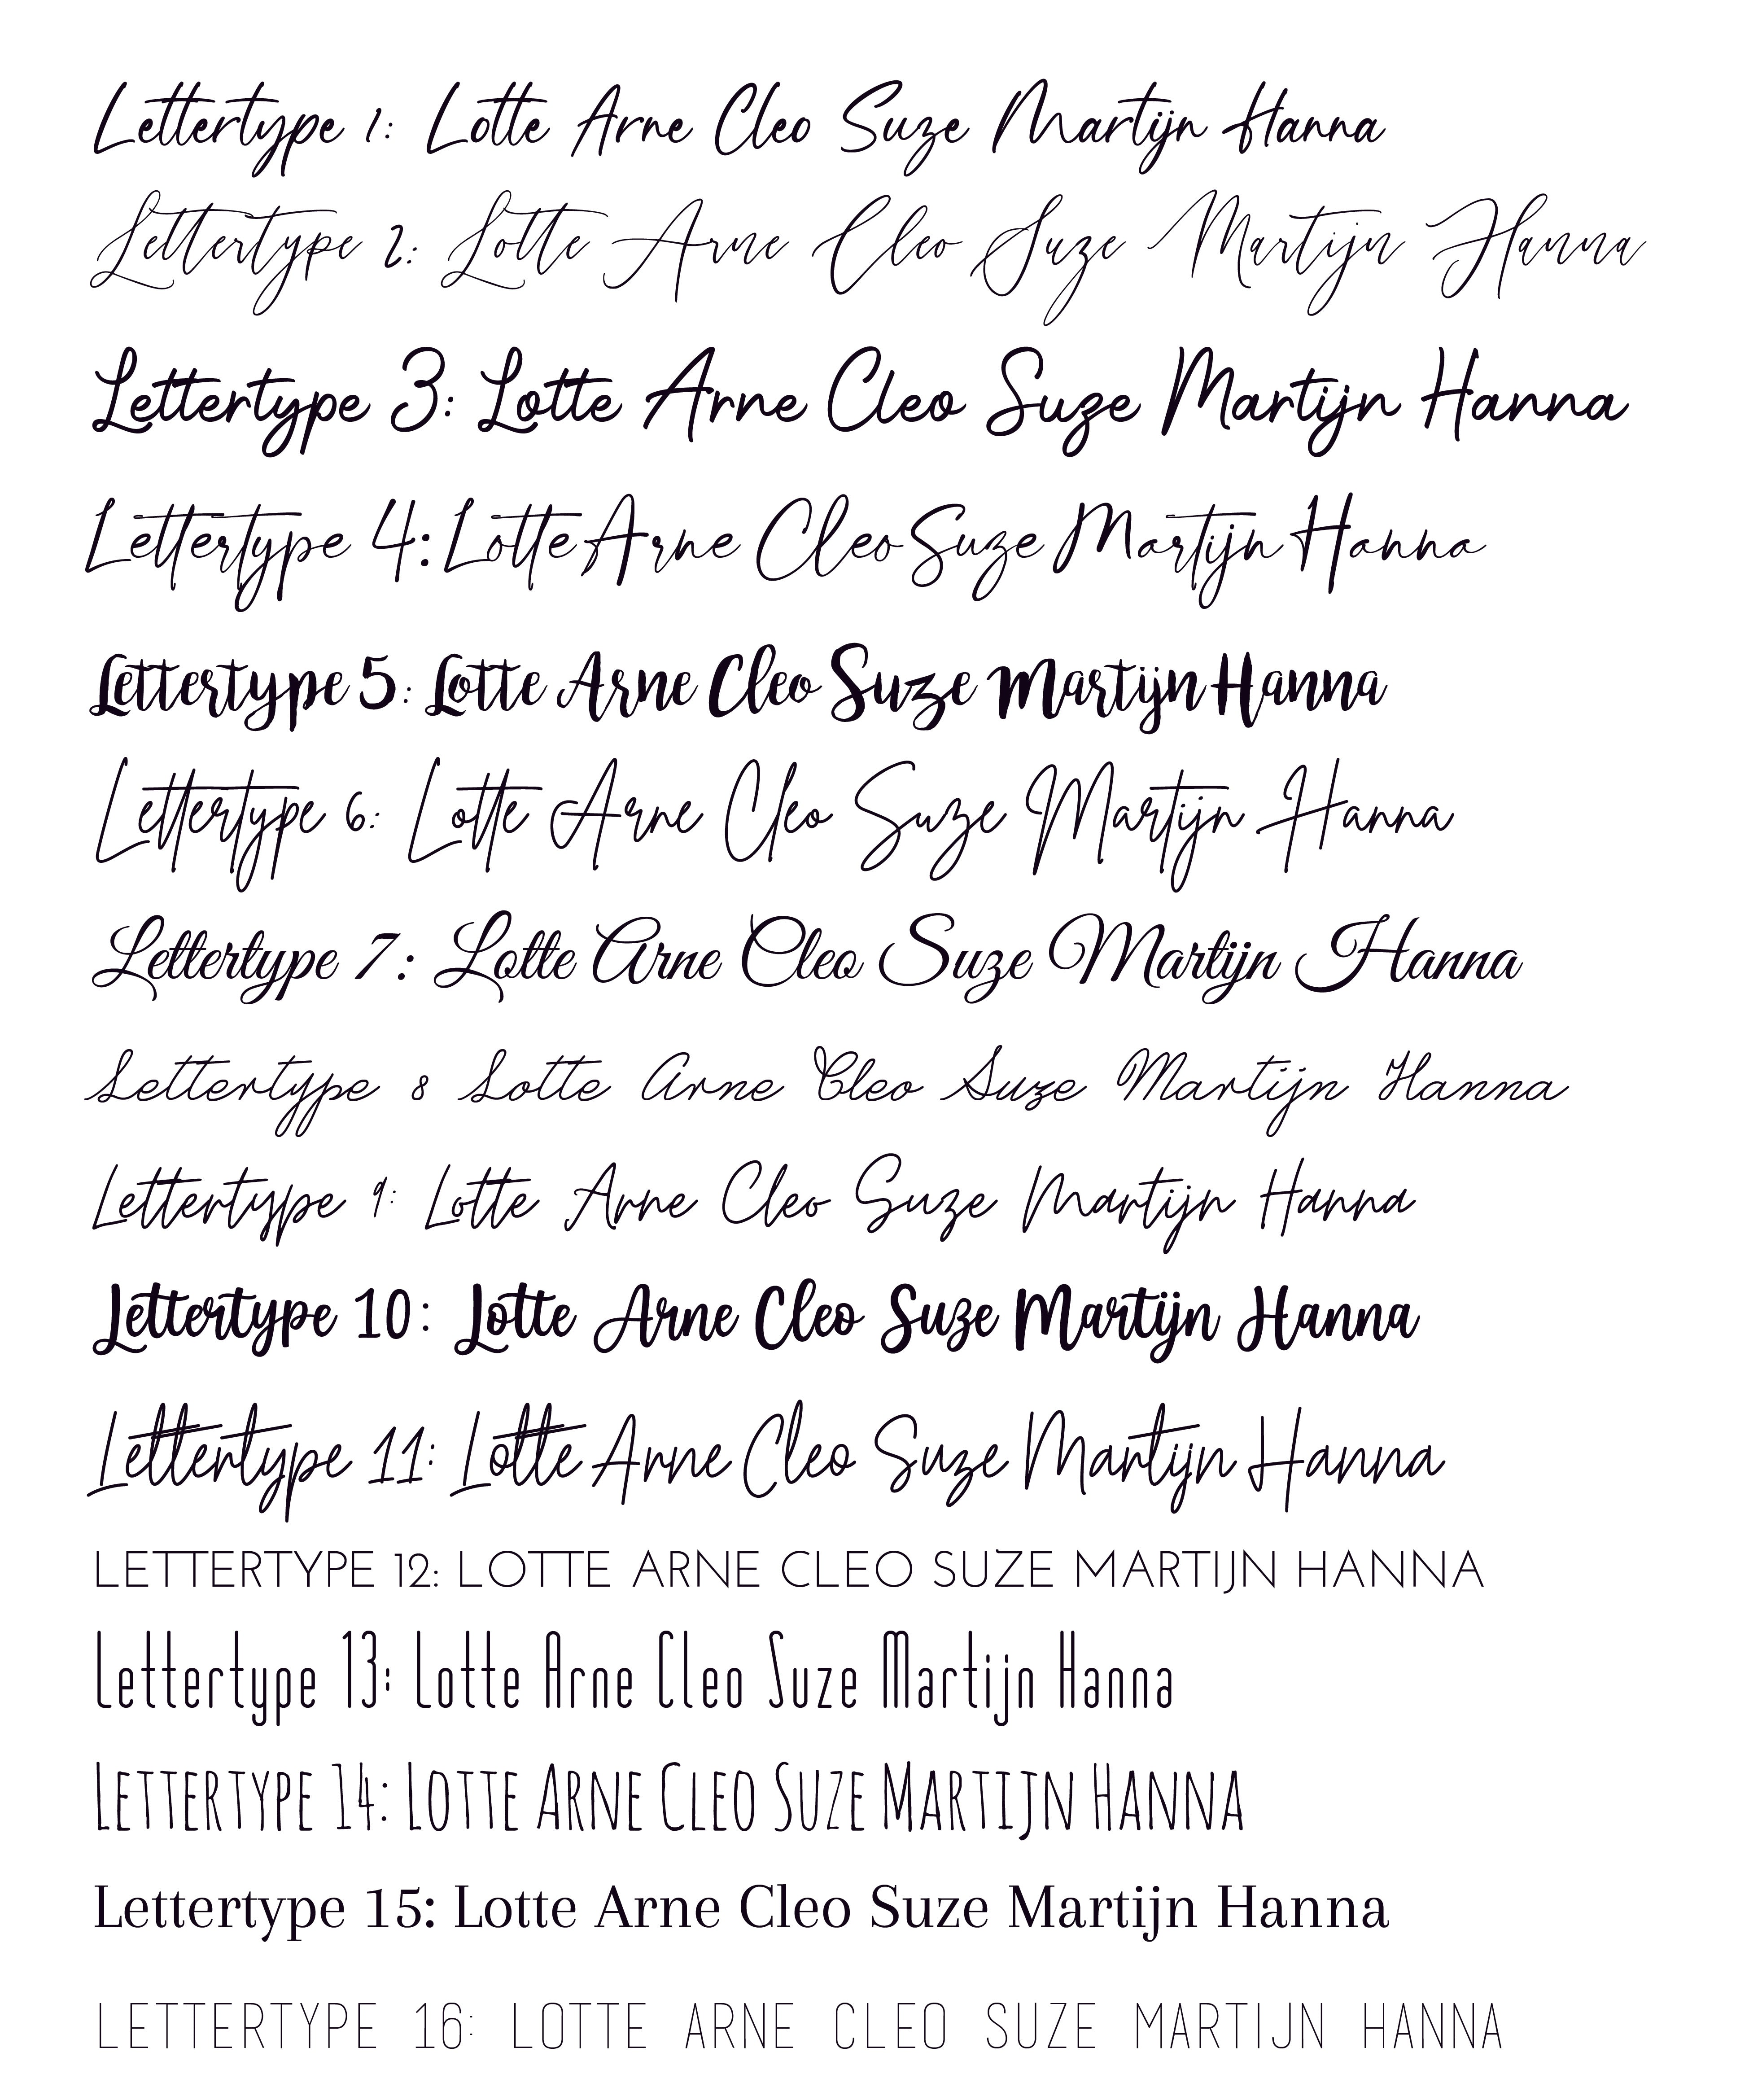 Lettertype 1: Lotte Arne Cleo Suze Martijn Hanna
Lettertype 2: Lotte Arne Cleo Suze Martijn Hanna
Lettertype 3: Lotte Arne Cleo Suze Martijn Hanna
Lettertype 4: Lotte Arne Cleo Suze Martijn Hanna
Lettertype 5: Lotte Arne Cleo Suze Martijn Hanna
Lettertype 6: Lotte Arne Cleo Suze Martijn Hanna
Lettertype 7: Lotte Arne Cleo Suze Martijn Hanna
Lettertype 8 Lotte Arne Cleo Suze Martijn Hanna
Lettertype 9: Lotte Arne Cleo Suze Martijn Hanna
Lettertype 10: Lotte Arne Cleo Suze Martijn Hanna
Lettertype 11: Lotte Arne Cleo Suze Martijn Hanna
LETTERTYPE 12: LOTTE ARNE CLEO SUZE MARTIJN HANNA
Lettertype 13: Lotte Arne Cleo Suze Martijn Hanna
LETTERTYPE 14: LOTTE ARNE CLEO SUZE MARTIJN HANNA
Lettertype 15: Lotte Arne Cleo Suze Martijn Hanna
LETTERTYPE 16: LOTTE ARNE CLEO SUZE MARTIJN HANNA